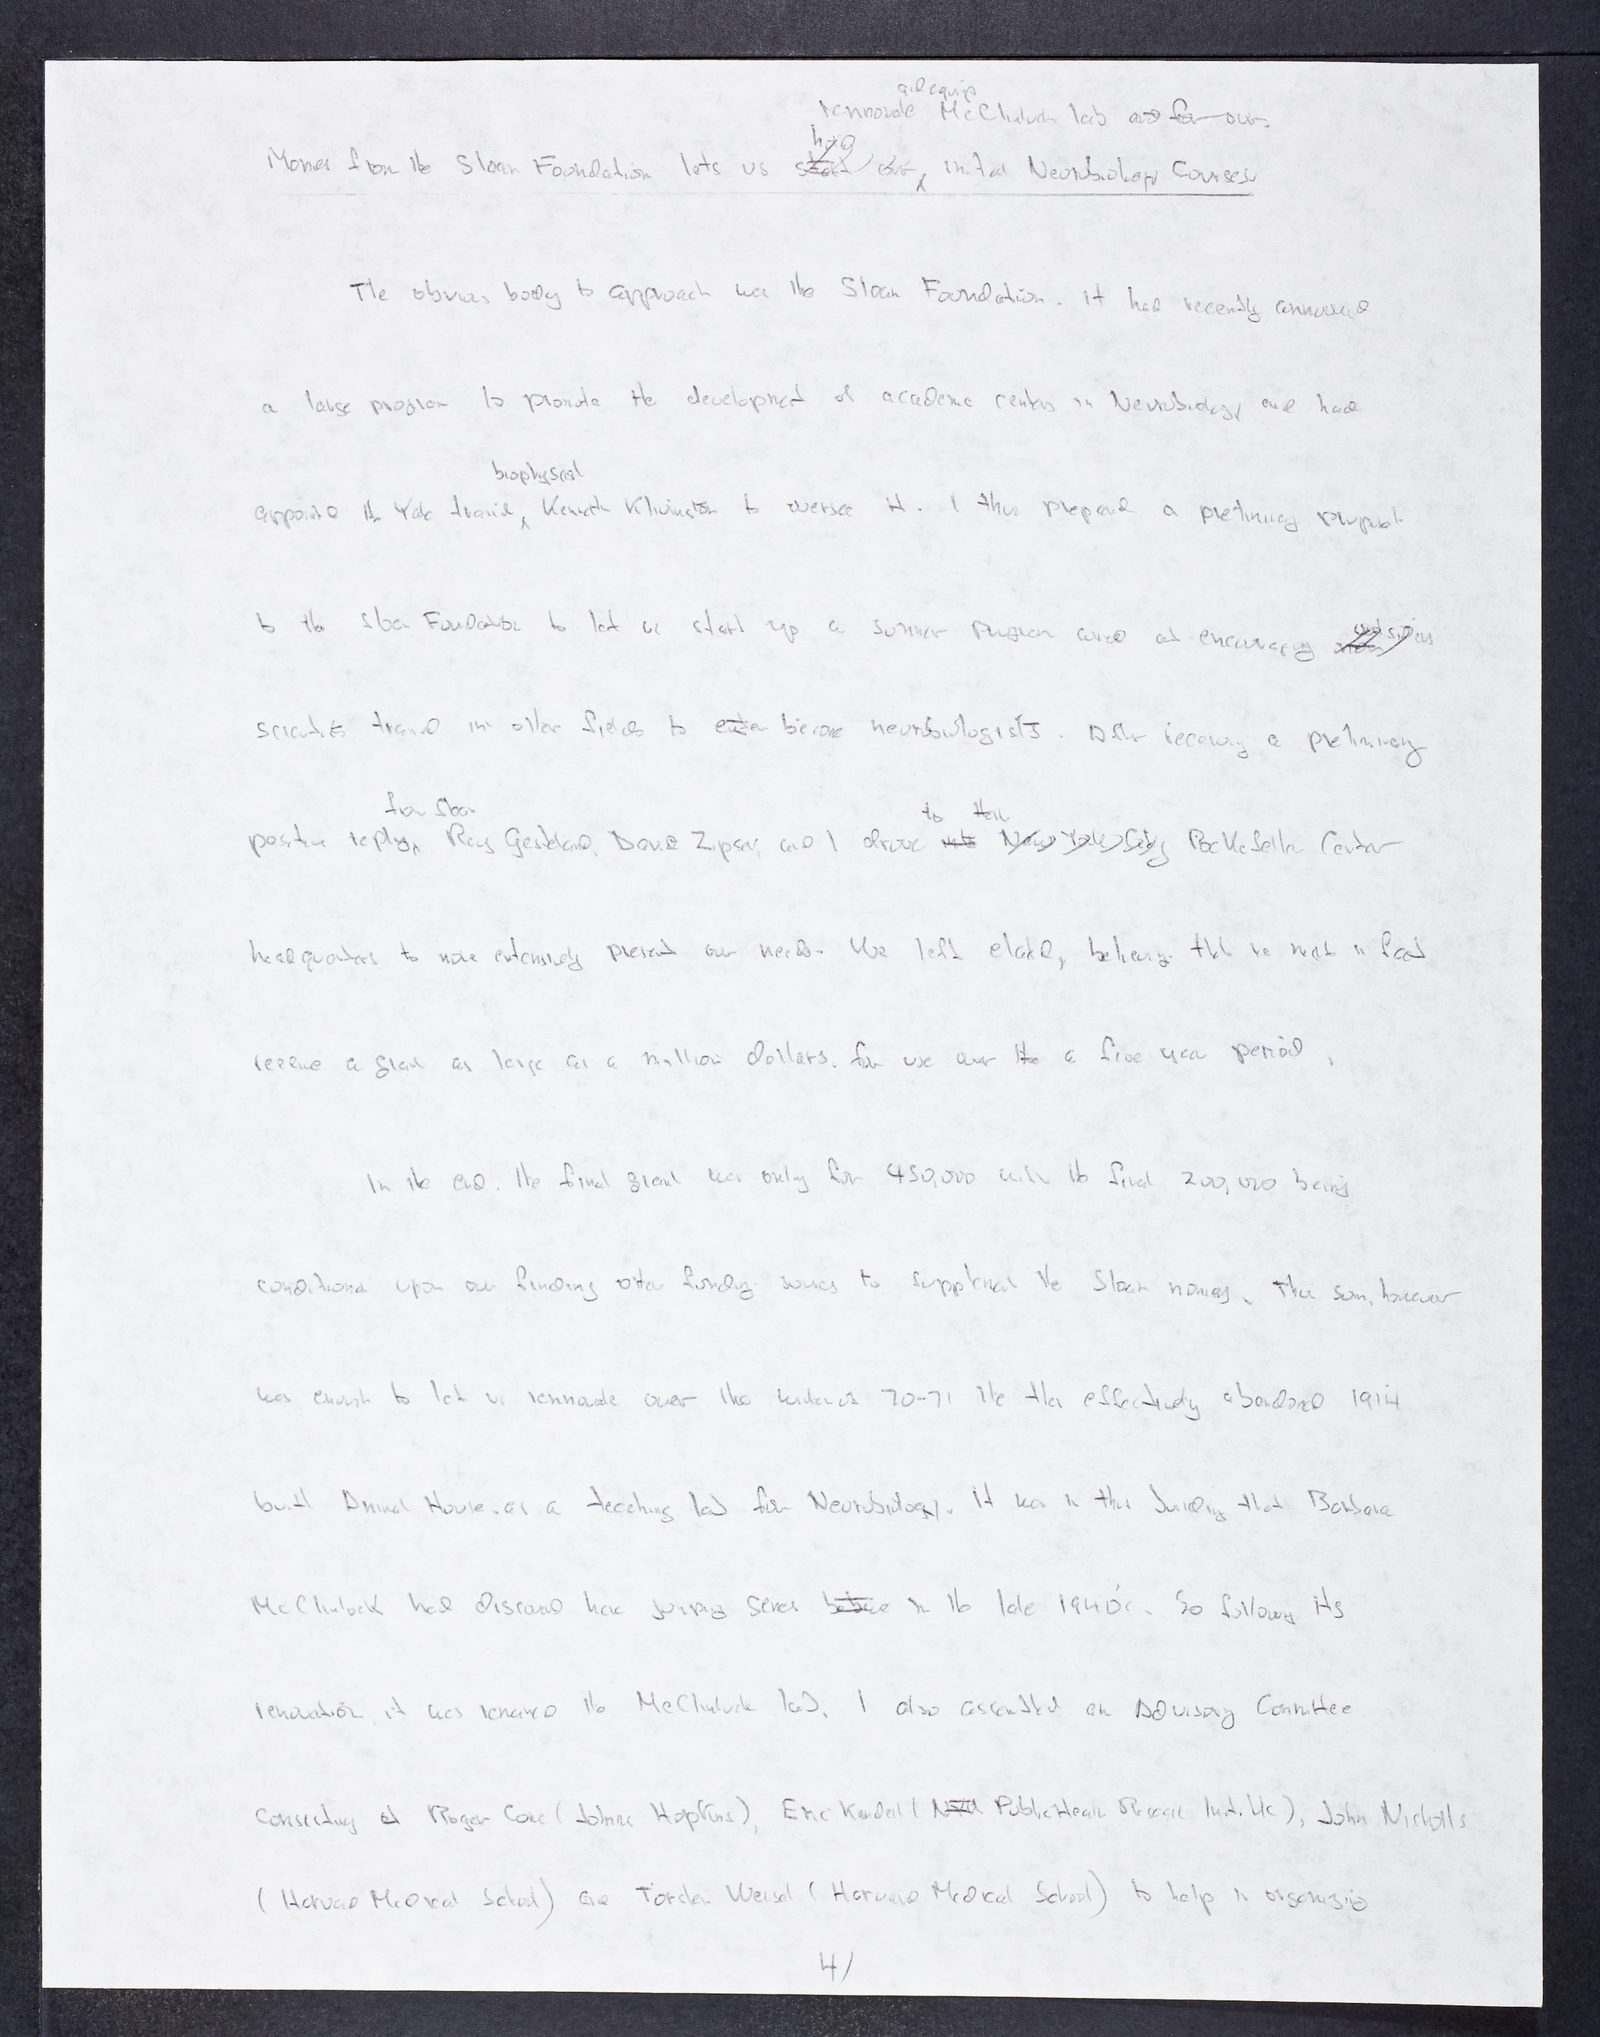 and equip
rennovate McClintock lab and for our
hold
Money from the Sloan Foundation lets us start our initial Neurobiology Courses
The obvious body to approach was the Sloan Foundation. It had recently announced
a large program to promote the development of academic centers in Neurobiology and had
biophysicist
appointed the Yale trained, Kenneth Klivington to oversee it. I thus prepared a preliminary proposal
to the Sloan Foundation to let us start up a summer program aimed at encouraging
scientists trained in other fields to enter become neurobiologists. After receiving a preliminary
from Sloan to their
positive reply, Ray Gesteland, David Zipser, and I drove into New York City Rockefeller Center
headquarters to more extensively present our needs. We left elated, believing that we might in fact
receive a grant as large as a million dollars. for use over the a five year period.
In the end. the final grant was only for 450,000 with the final 200,000 being
conditional upon our finding other funding sources to supplement the Sloan money. This sum, however
was enough to let us rennovate over the winter of 70-71 the then effectively abandoned 1914
built Animal House as a teaching lab for Neurobiology. It was in this building that Barbara
McClintock had discovered her jumping genes in the late 1940's. So following its
renovation it was renamed the McClintock lab. I also assembled an Advisory Committee
consisting of Roger Coke (Johns Hopkins), Eric Kandel (Public Health Research Inst. NYC), John Nicholls
(Harvard Medical School) and Torsten Weisel (Harvard Medical School) to help in organizing
4/